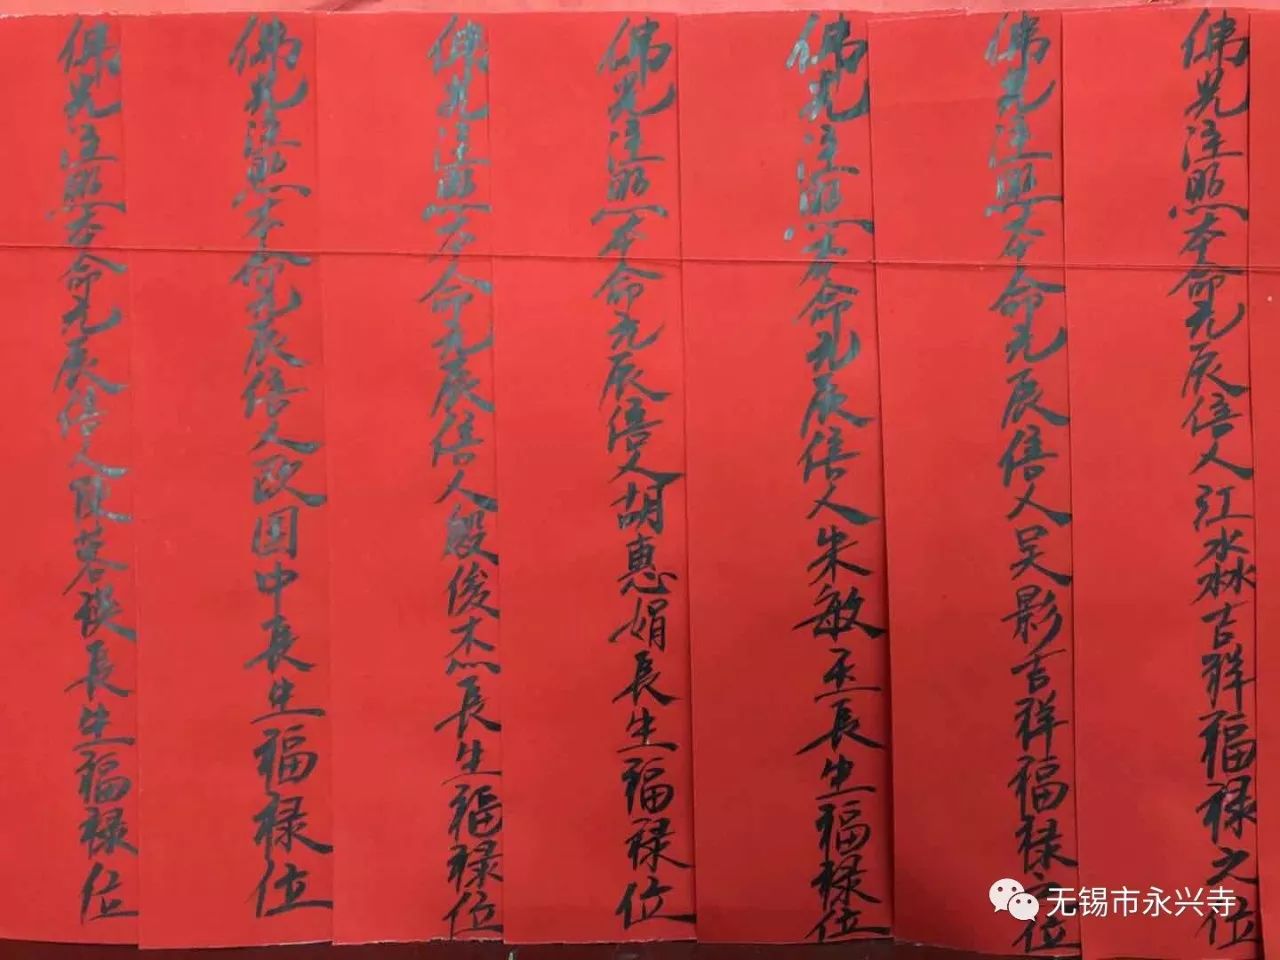 佛光注照本命元辰信人江水淼吉祥福禄之位
佛光注照本命元辰信人吴影吉祥福禄之位
佛光注照本命元辰信人朱敏玉長生福禄位
佛光注照本命元辰信人胡惠娟長生福禄位
佛光注照本命元辰信人殷俊杰長生福禄位
佛光注照本命元辰信人欧国中長生福禄位
佛光注照本命元辰信人陳蓉長生福禄位
无锡市永兴寺